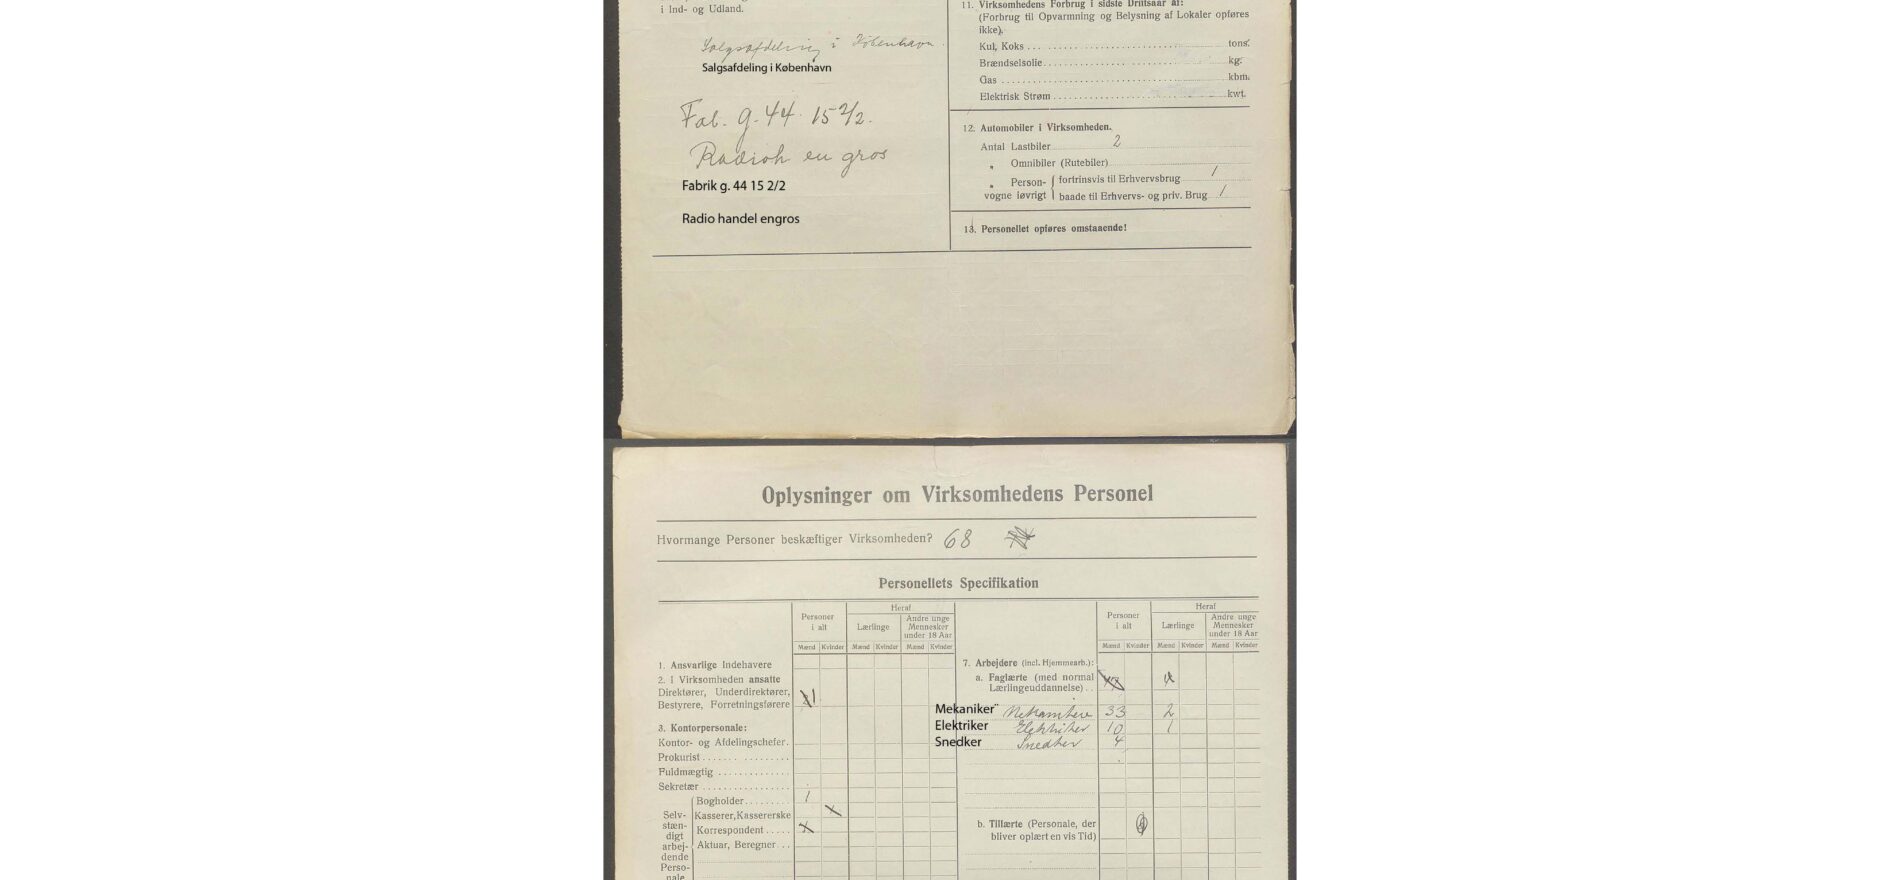 i Ind- og Udland.
Salgsafdeling i København.
Salgsafdeling i København
Fab. g. 44 15 2/2.
Radioh en gros
Fabrik g. 44 15 2/2
Radio handel engros
11. Virksomhedens Forbrug i sidste Driftsaar af:
(Forbrug til Opvarmning og Belysning af Lokaler opføres
ikke).
Kul, Koks ... tons.
Brændselsolie ... kg.
Gas ... kbm.
Elektrisk Strøm ... kwt.
12. Automobiler i Virksomheden.
Antal Lastbiler 2
" Omnibiler (Rutebiler)
" Person- { fortrinsvis til Erhvervsbrug 1
vogne iøvrigt { baade til Erhvervs- og priv. Brug 1
13. Personellet opføres omstaaende!
Oplysninger om Virksomhedens Personel
Hvormange Personer beskæftiger Virksomheden? 68
Personellets Specifikation
Personer i alt
Heraf
Lærlinge
Andre unge Mennesker under 18 Aar
Mænd Kvinder Mænd Kvinder Mænd Kvinder
1. Ansvarlige Indehavere
2. I Virksomheden ansatte
Direktører, Underdirektører,
Bestyrere, Forretningsførere 1
3. Kontorpersonale:
Kontor- og Afdelingschefer.
Prokurist
Fuldmægtig
Sekretær
Selv-
stæn-
digt
arbej-
dende
Perso-
nale
Bogholder 1
Kasserer, Kassererske
Korrespondent
Aktuar, Beregner
Personer i alt
Heraf
Lærlinge
Andre unge Mennesker under 18 Aar
Mænd Kvinder Mænd Kvinder Mænd Kvinder
7. Arbejdere (incl. Hjemmearb.):
a. Faglærte (med normal
Lærlingeuddannelse)
Mekaniker Mekanikere 33 2
Elektriker Elektriker 10 1
Snedker Snedker 4
b. Tillærte (Personale, der
bliver oplært en vis Tid)